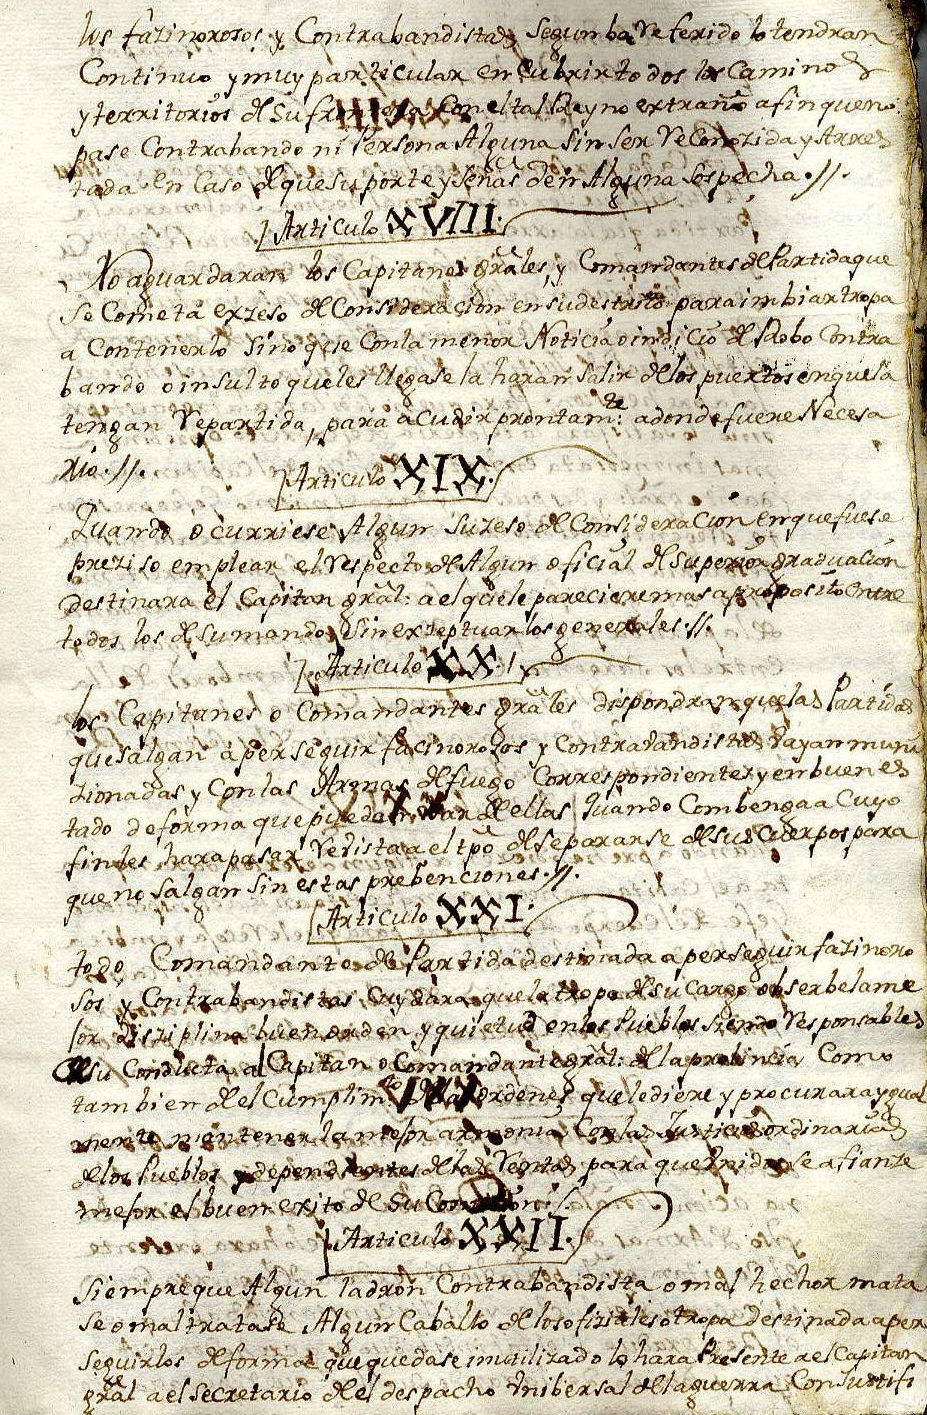 los fazinorosos y Contrabandistas Segun ba Referido lo tendran
Continuo y muy particular en Cubrir todos los Caminos
y territorios de su frontera Con el tal Reyno extraño a fin que no
pase Contrabando ni Persona Alguna sin ser ReConozida y Arres
tada en Caso de que su porte y señas den Alguna Sospecha. //.
Articulo XVIII.
No aguardaran los Capitanes grales, y Comandantes de Partida que
se Cometa exzeso de Consideracion en su destrito para imbiar tropa
a Contenerlo sino que Con la menor Noticia o indicio de Robo Contra
bando o insulto que les llegase la haran salir de los puertos en que la
tengan Repartida, para acudir prontamte: a donde fuere Necesa
rio. //.
Articulo XIX.
Quando ocurriese Algun suzeso de Consideracion en que fuese
preziso emplear el Respecto de Algun oficial de Superior graduacion
destinara el Capitan gral: a el que le pareciere mas a proposito entre
todos los de su mando, sin exseptuar los generales. //.
Articulo XX.
los Capitanes o Comandantes grales dispondran que las Partidas
que salgan a perseguir facinorosos y Contrabandistas vayan muni
zionadas y Con las Armas de fuego Correspondientes y en buen es
tado de forma que puedan usar de ellas Quando Combenga a Cuyo
fin les hara pasar Revista a el tpo de separarse de sus Cuerpos para
que no salgan sin estas prebenciones. //.
Articulo XXI.
todo Comandante de Partida destinada a perseguir fazinoro
sos y Contrabandistas Cuydara que la tropa de su Cargo obserbe la me
jor disziplina buen orden y quietud en los Pueblos siendo Responsable
de su Conducta al Capitan o Comandante gral: de la probincia Como
tambien de el Cumplimto de las ordenes que le diere y procurara ygual
mente mantener la mejor armonia Con las Justicias ordinarias
de los Pueblos y dependientes de las Rentas para que Unidos se afianze
mejor el buen exito de su Comision //.
Articulo XXII.
Siempre que Algun ladron Contrabandista o mal hechor mata
se o maltratase Algun Caballo de los ofiziales o tropa destinada a per
seguirlos de forma que quedase inutilizado lo hara Presente a el Capitan
gral a el Secretario de el despacho Unibersal de la guerra Con Justifi